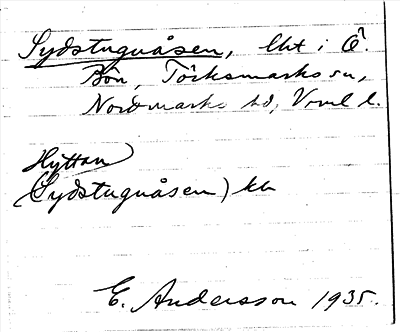 Sydstuguåsen, lht i Ö.
Bön, Töcksmarks sn,
Nordmarks hd, Vrml l.
Hyttan
(Sydstuguåsen) kb
E. Andersson 1935.